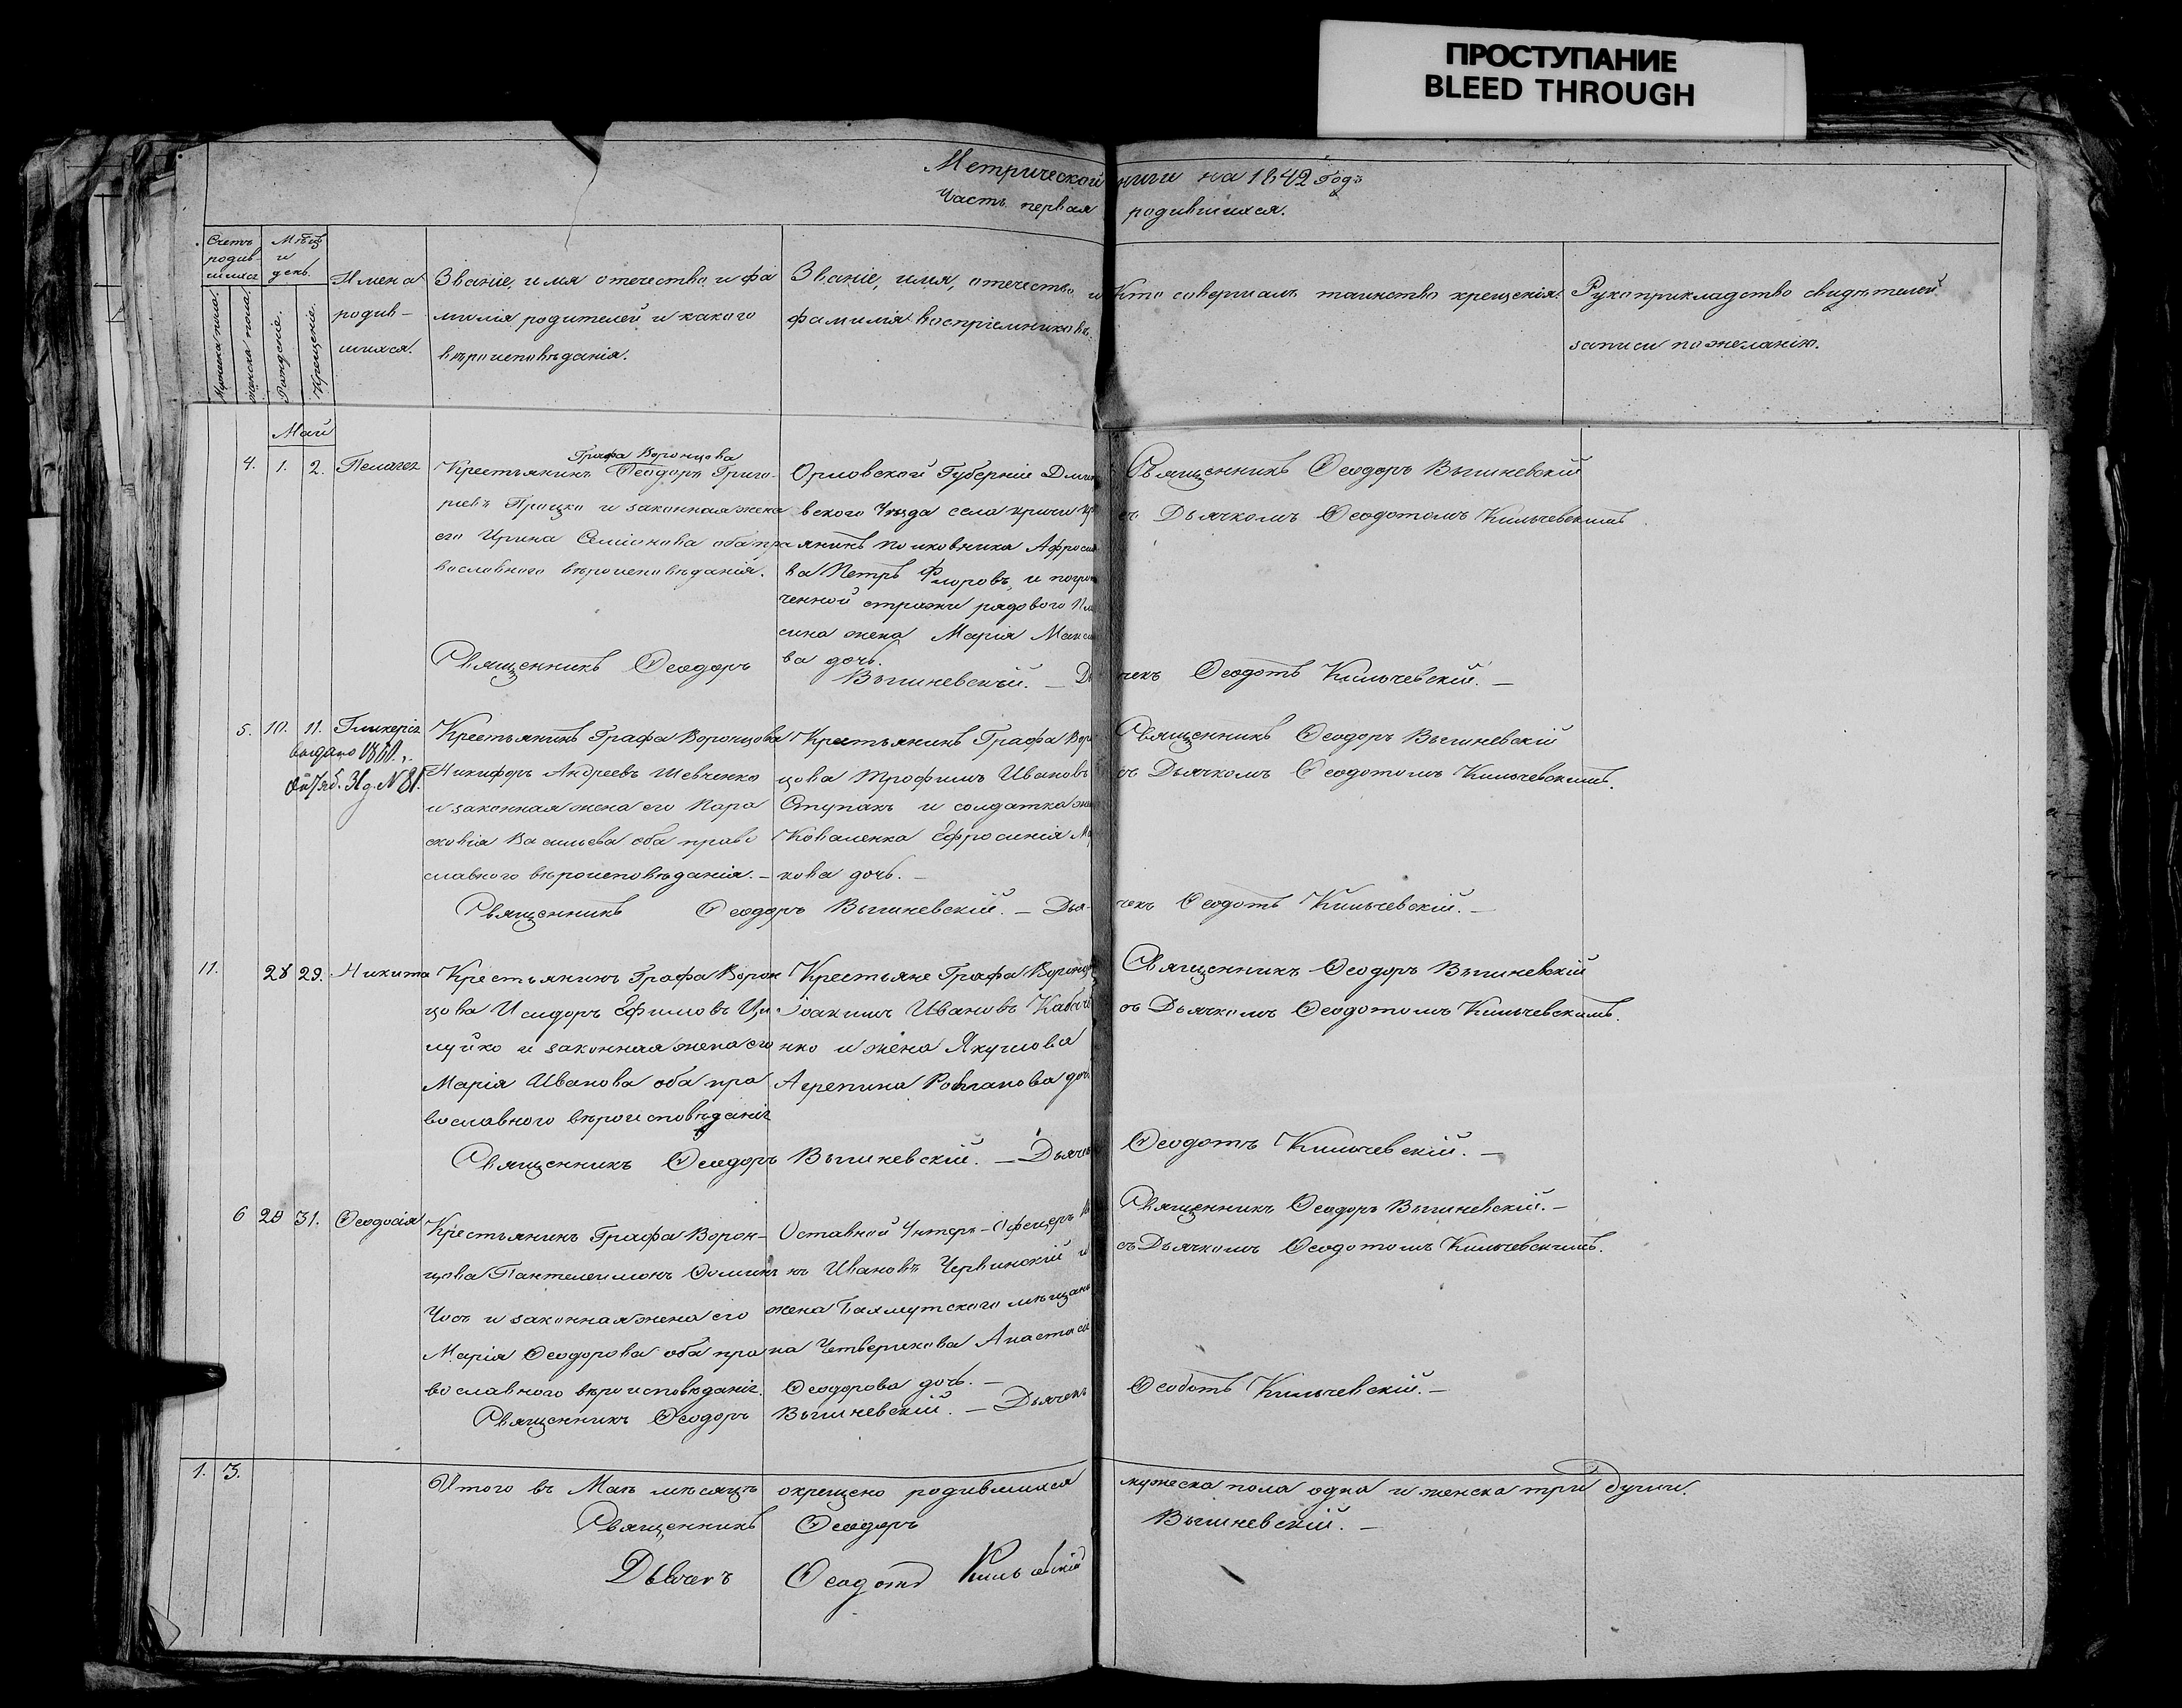 ПРОСТУПАНИЕ
BLEED THROUGH
Метрической ниги на 1842 Годъ
Часть первая родившихся.
Счетъ родив-шихся
Мѣсяцъ и день.
Мужеска пола.
Женска пола.
Рожденіе.
Крещеніе.
Имена родив-шихся.
Званіе, имя отечество и фа
милія родителей и какого
вѣроисповѣданія.
Званіе, имя, отечество и
фамилія воспріемниковъ.
Кто совершалъ таинство крещенія.
Рукоприкладство свидѣтелей
записи по желанію.
Май
4. 1. 2. Пелагея
Графа Воронцова
Крестьянинъ Ѳеодоръ Григо-
рьевъ Процко и законная жена
его Ирина Семіонова оба пра
вославного вѣроисповѣданія.
Орловской Губерніи Дми
вского Уѣзда села
янинъ полковника Афроси
ва Петръ Флоровъ, и погра
ченной стражи рядового
сина жена Марія Макси
ва дочь.
Священникъ Ѳеодоръ Вышневскій
съ Дьячкомъ Ѳеодотомъ Кильчевскимъ
Священникъ Ѳеодоръ Вышневскій. — Дьячекъ Ѳеодотъ Кильчевскій. —
5. 10. 11. Гликерія
выдано 1860.
Октяб. 31 д. N 81.
Крестьянинъ Графа Воронцова
Никифоръ Андреевъ Шевченко
и законная жена его Пара
сковія Васильева оба право
славного вѣроисповѣданія. —
Крестьянинъ Графа Ворон
цова Трофимъ Ивановъ
Ступакъ и солдатка
Коваленка Ефросинія Ма
кова дочь. —
Священникъ Ѳеодоръ Вышневскій
съ Дьячкомъ Ѳеодотомъ Кильчевскимъ.
Священникъ Ѳеодоръ Вышневскій. — Дьячекъ Ѳеодотъ Кильчевскій. —
11. 28 29. Никита
Крестьянинъ Графа Ворон
цова Исидоръ Ефимовъ Ци
луйко и законная жена его
Марія Иванова оба пра
вославного вѣроисповѣданія
Крестьяне Графа Воронцова
Іоакимъ Ивановъ Кабаче
нко и жена Якушова
Агрепина Романова дочь
Священникъ Ѳеодоръ Вышневскій
съ Дьячкомъ Ѳеодотомъ Кильчевскимъ.
Священникъ Ѳеодоръ Вышневскій. — Дьячекъ Ѳеодотъ Кильчевскій. —
6 29 31. Ѳеодосія
Крестьянинъ Графа Ворон-
цова Пантелеимонъ Ѳоминъ
Чосъ и законная жена его
Марія Ѳеодорова оба пра
вославного вѣроисповѣданія.
Оставной Унтеръ-Офецеръ
нъ Ивановъ Червинскій и
жена Бахмутского мѣщани
на Четверикова Анастасія
Ѳеодорова дочь. —
Священникъ Ѳеодоръ Вышневскій. —
съ Дьячкомъ Ѳеодотомъ Кильчевскимъ.
Священникъ Ѳеодоръ Вышневскій. — Дьячекъ Ѳеодотъ Кильчевскій. —
1. 3.
Итого въ Маѣ мѣсяцѣ окрещено родившихся мужеска пола одна и женска три души.
Священникъ Ѳеодоръ Вышневскій. —
Дьячекъ Ѳеодотъ Кильчевскій